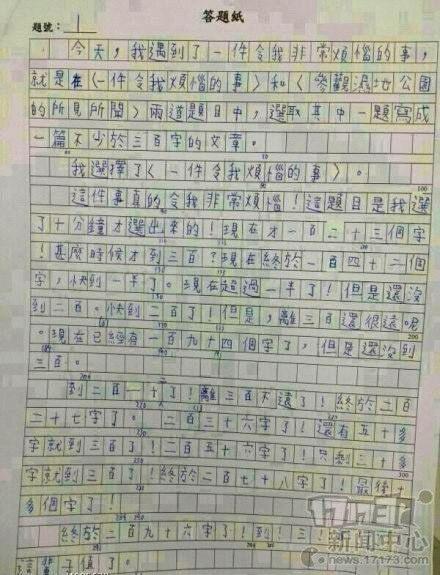 答題紙
題號：1
今天，我遇到了一件令我非常煩惱的事，
就是在〈一件令我煩惱的事〉和〈參觀濕地公園
的所見所聞〉兩道題目中，選取其中一題寫成
一篇不少於三百字的文章。
我選擇了〈一件令我煩惱的事〉。
100
這件事真的令我非常煩惱！這題目是我選
了十分鐘才選出來的！現在才一百二十三個字
！甚麼時候才到三百？現在終於一百四十二個
字，快到一半了。現在超過一半了！但是還沒
到二百。快到二百了！但是，離三百還很遠。唉
200
。現在已經有一百九十四個字了，但是還沒到
三百。
到二百一十了！離三百不遠了！終於二百
二十七字了。二百三十六字了！還有五十多
字就到三百了！二百五十六字了！只剩三十多
300
字就到三百了！終於二百七十八字了！最後十
多個字了！
終於二百九十六字了！到！三！
這輩子值了。
17173.com
新闻中心
news.17173.com